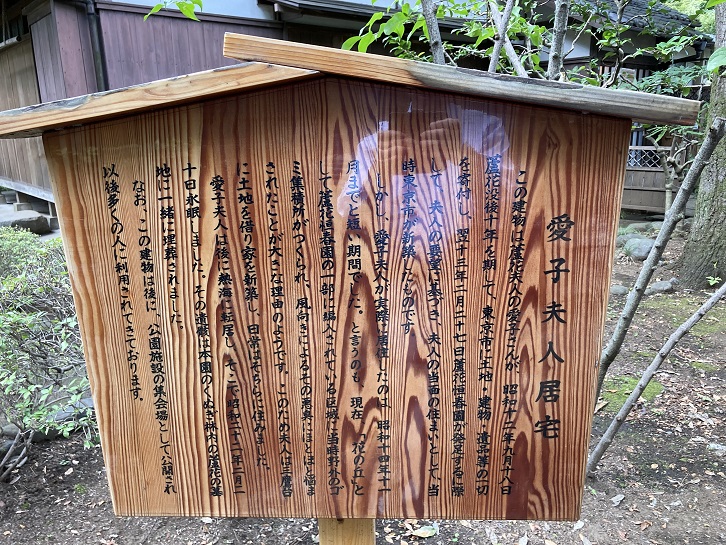 愛子夫人居宅
この建物は蘆花夫人の愛子さんが、昭和十二年九月十八日
蘆花没後十年を期して、東京市に土地、建物、遺品等の一切
を寄付し、翌十三年二月二十七日蘆花恒春園が発足する際
して、夫人の要望に基づき、夫人の当面の住まいとして、当
時東京市が新築したものです。
しかし、愛子夫人が実際に居住したのは、昭和十四年十一
月までと短い期間でした。と言うのも、現在、「花の丘」と
して蘆花恒春園の一部に編入されている区域に当時野外のゴ
ミ集積所がつくられ、風向きによるその悪臭にほとほと悩ま
されたことが大きな理由のようです。このため夫人は三鷹台
に土地を借り家を新築し、日常はそちらに住みました。
愛子夫人は後、熱海に転居し、そこで昭和二十二年二月二
十日永眠しました。その遺骸は本園のくぬぎ林内の蘆花の墓
地に一緒に埋葬されました。
なお、この建物は後に、公園施設の集会場として公開され
以後多くの人に利用されてきております。